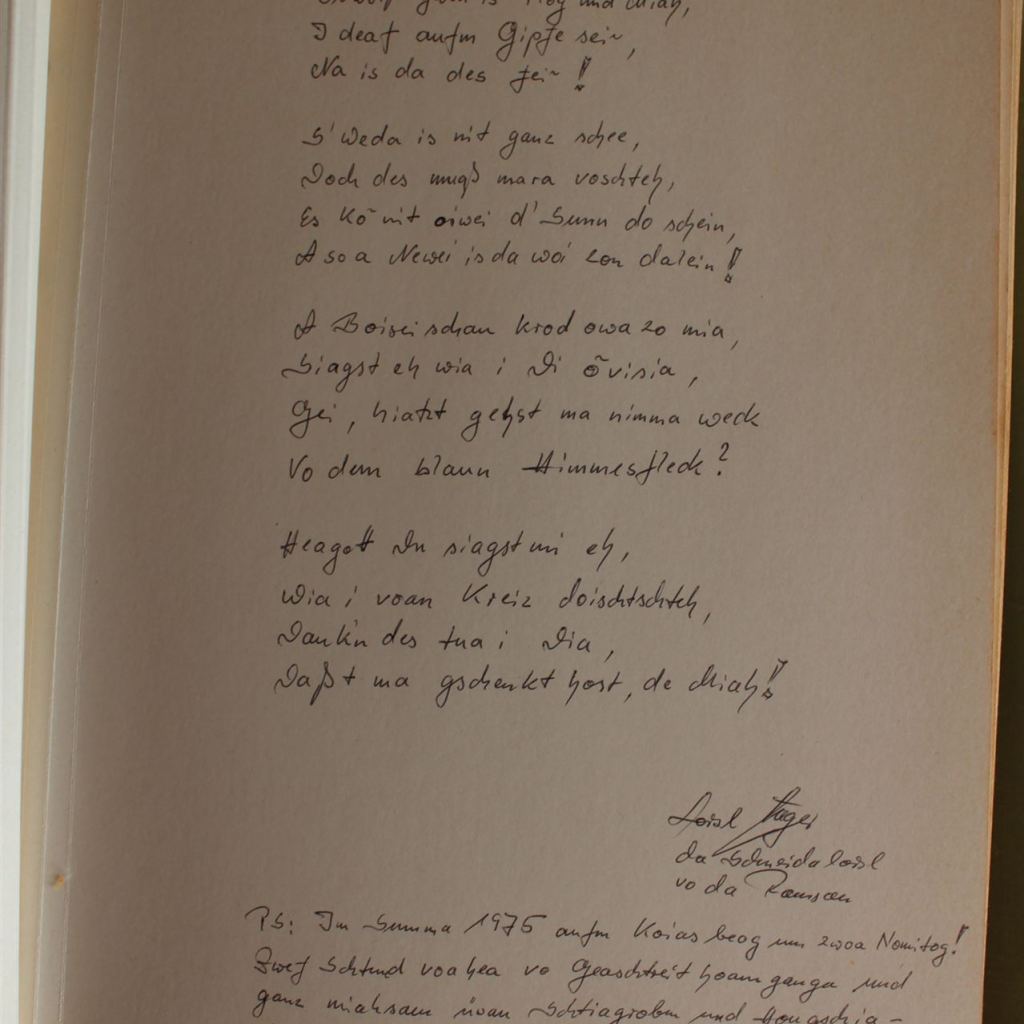 I deaf aufm Gipfe sei~,
Na is da des fei~!
S' Weda is nit ganz schee,
Doch des mugß mara voschteh,
Es kõ nit oiwei d' Sunn do schein,
A so a Newei is da woi zon dalein!
A Boisei schau krod owa zo mia,
Siagst eh wia i Di õvisia,
Gei, hiatzt gehst ma nimma weck
Vo dem blaun Himmesfleck?
Heagott Du siagst mi eh,
Wia i voan Kreiz doischtschteh,
Dank'n des tua i Dia,
Daßt ma gschenkt host, de Miah!
Loisl
da Schneida Loisl
vo da Ramsau
PS: Im Summa 1975 aufm Koiasbeog um zwoa Nomitog!
Zwef Schtund voahea vo Geaschtreit hoamganga und
ganz miahsam üwan Schtiagrobm und